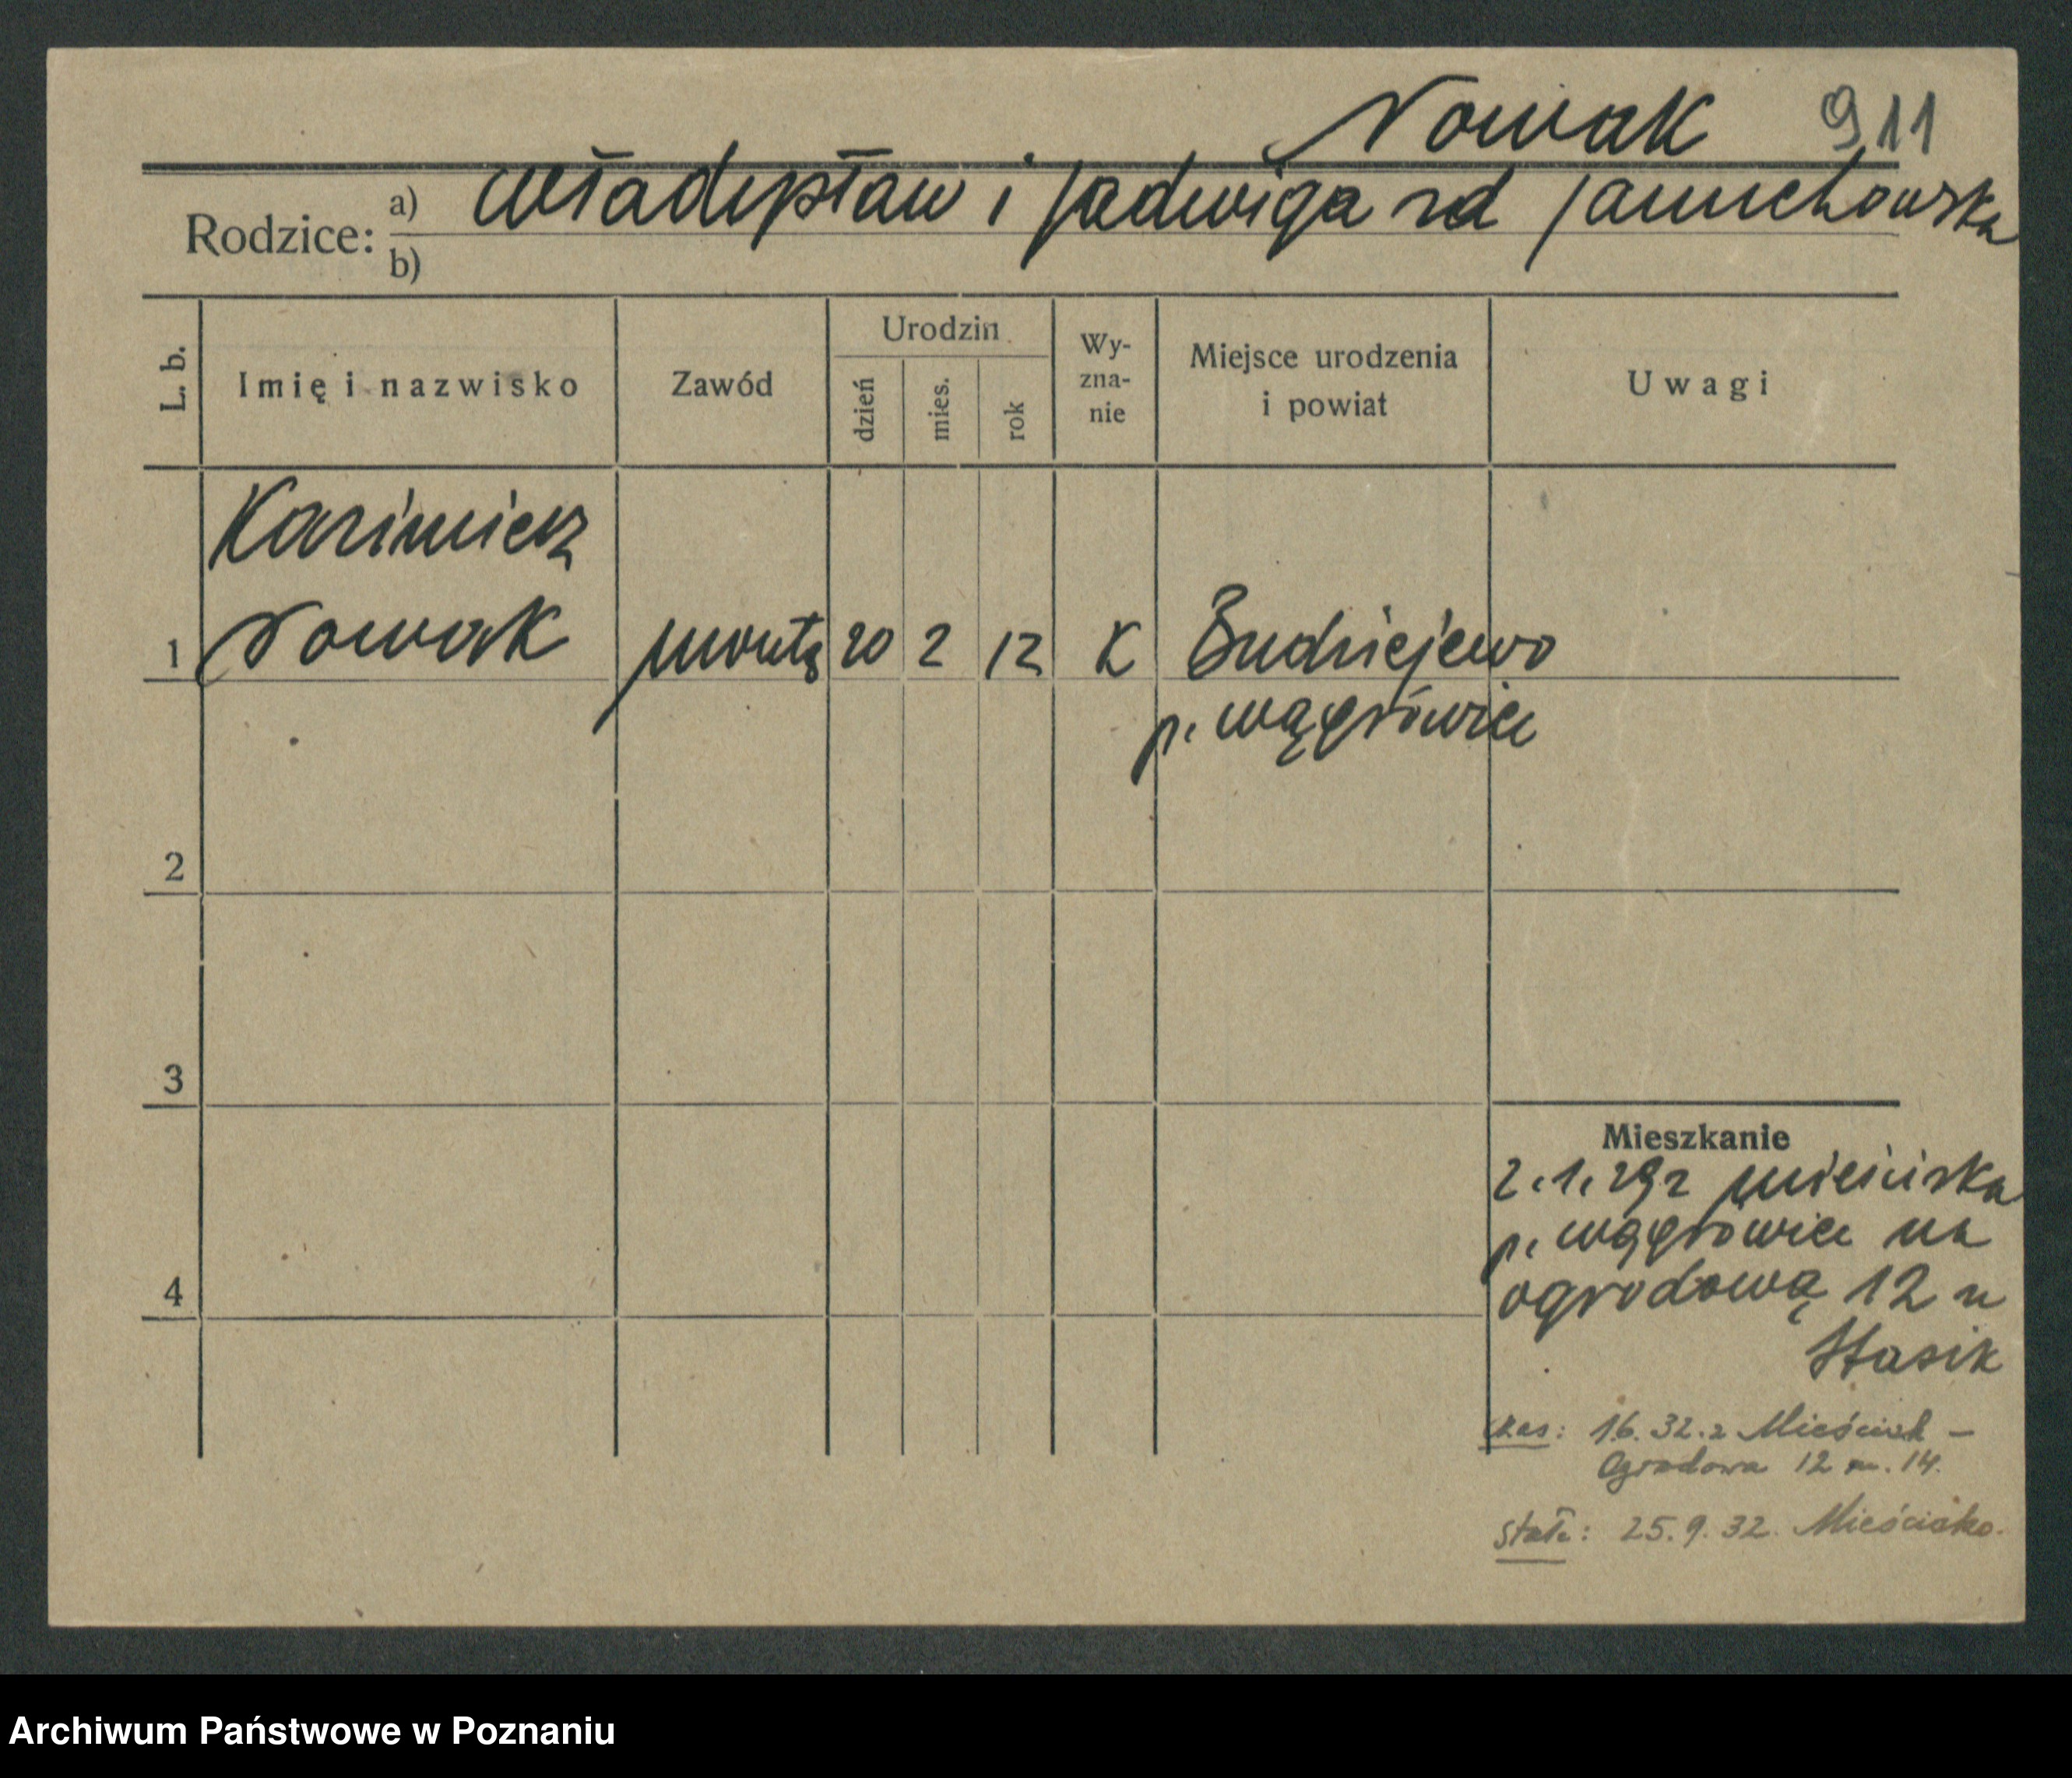 Nowak 911
Rodzice: a) Władysław i Jadwiga zd Januchowska
b)
L. b.
Imię i nazwisko
Zawód
Urodzin
dzień
mies.
rok
Wy-
zna-
nie
Miejsce urodzenia
i powiat
Uwagi
Kazimierz
1 Nowak 20 2 12 K Budziejewo
p. Wągrówiec
2
3
4
Mieszkanie
2.1.29 z Mieściska
p. Wągrówiec na
Ogrodową 12 u
Stasik
czas: 1.6.32. z Mieścisk –
Ogrodowa 12 m. 14.
stałe: 25.9.32. Mieścisko.
Archiwum Państwowe w Poznaniu